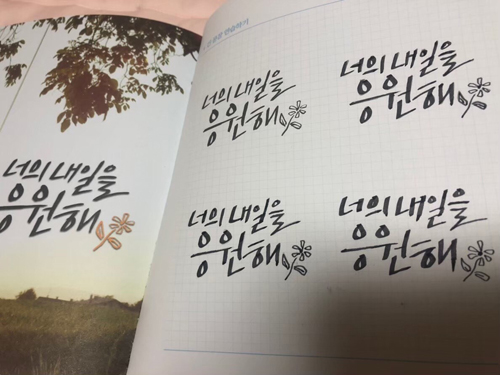 너의 내일을
응원해
너의 내일을
응원해
너의 내일을
응원해
너의 내일을
응원해
너의 내일을
응원해